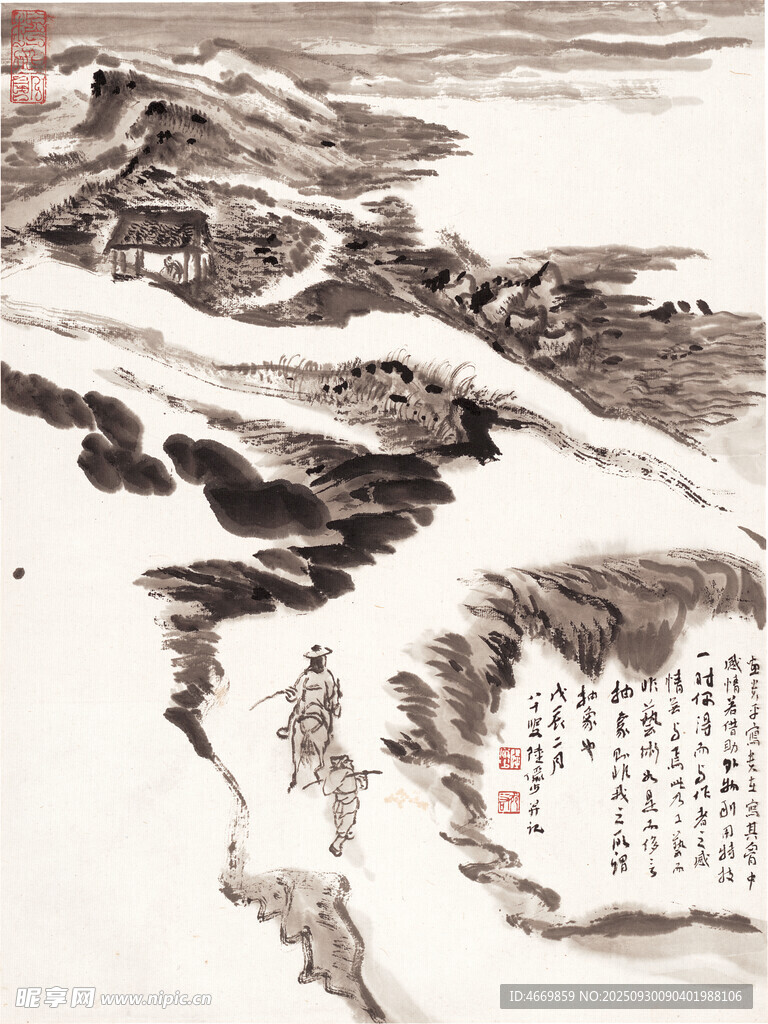 画贵乎写贵在写其胸中
感情若借助外物利用特技
一时伥得而与作者之感
情无与焉此乃工艺而
非艺术如是而侈言
抽象则非我之所谓
抽象也
戊辰二月
八十叟陆俨少并记
昵享网 www.nipic.cn
ID:4669859 NO:20250930090401988106